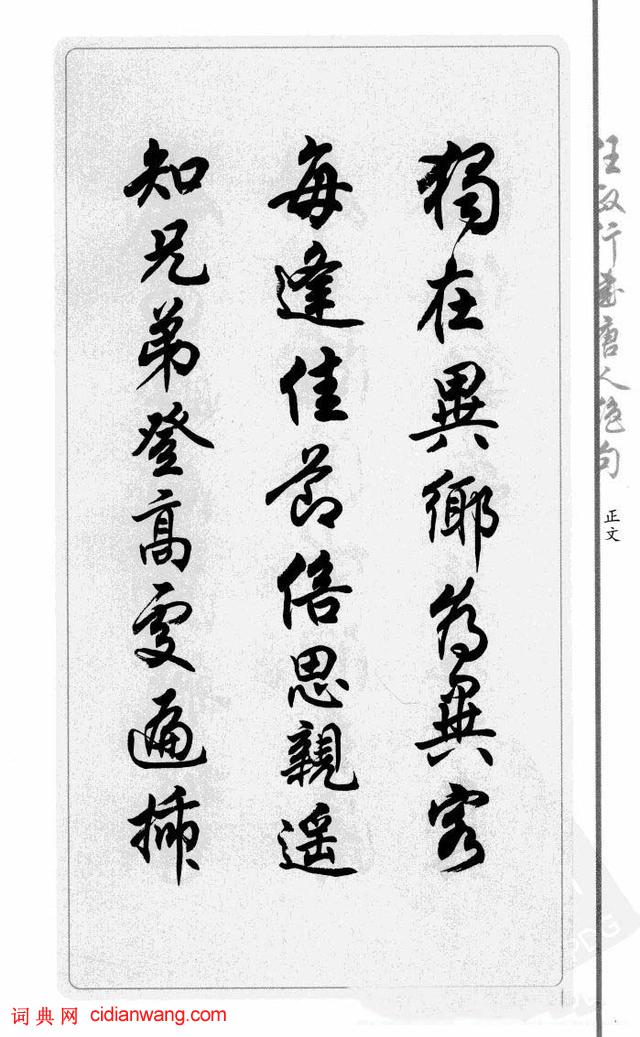 獨在異鄉為異客
每逢佳節倍思親遥
知兄弟登高處遍插
任政行書唐人絕句
正文
词典网 cidianwang.com
PDG